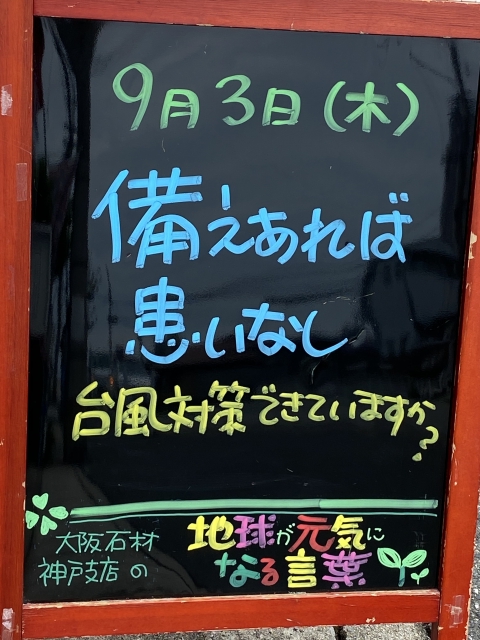 9月3日(木)
備えあれば
患いなし
台風対策できていますか?
大阪石材
神戸支店の
地球が元気に
なる言葉